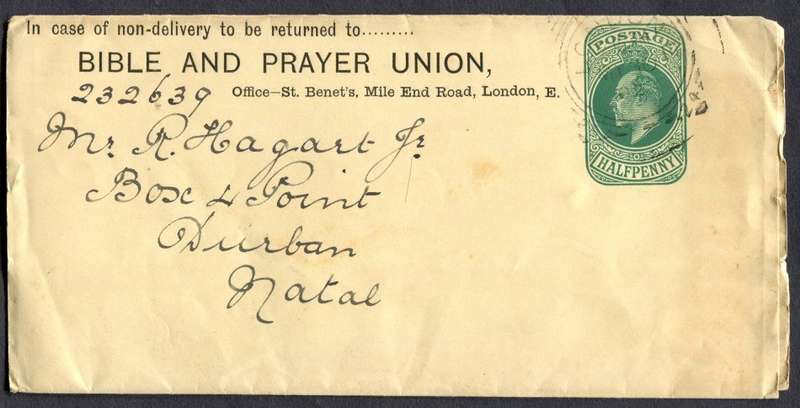 In case of non-delivery to be returned to.........
BIBLE AND PRAYER UNION,
232639 Office—St. Benet's, Mile End Road, London, E.
POSTAGE
HALFPENNY
Mr R. Hagart Jr
Box 4 Point
Durban
Natal